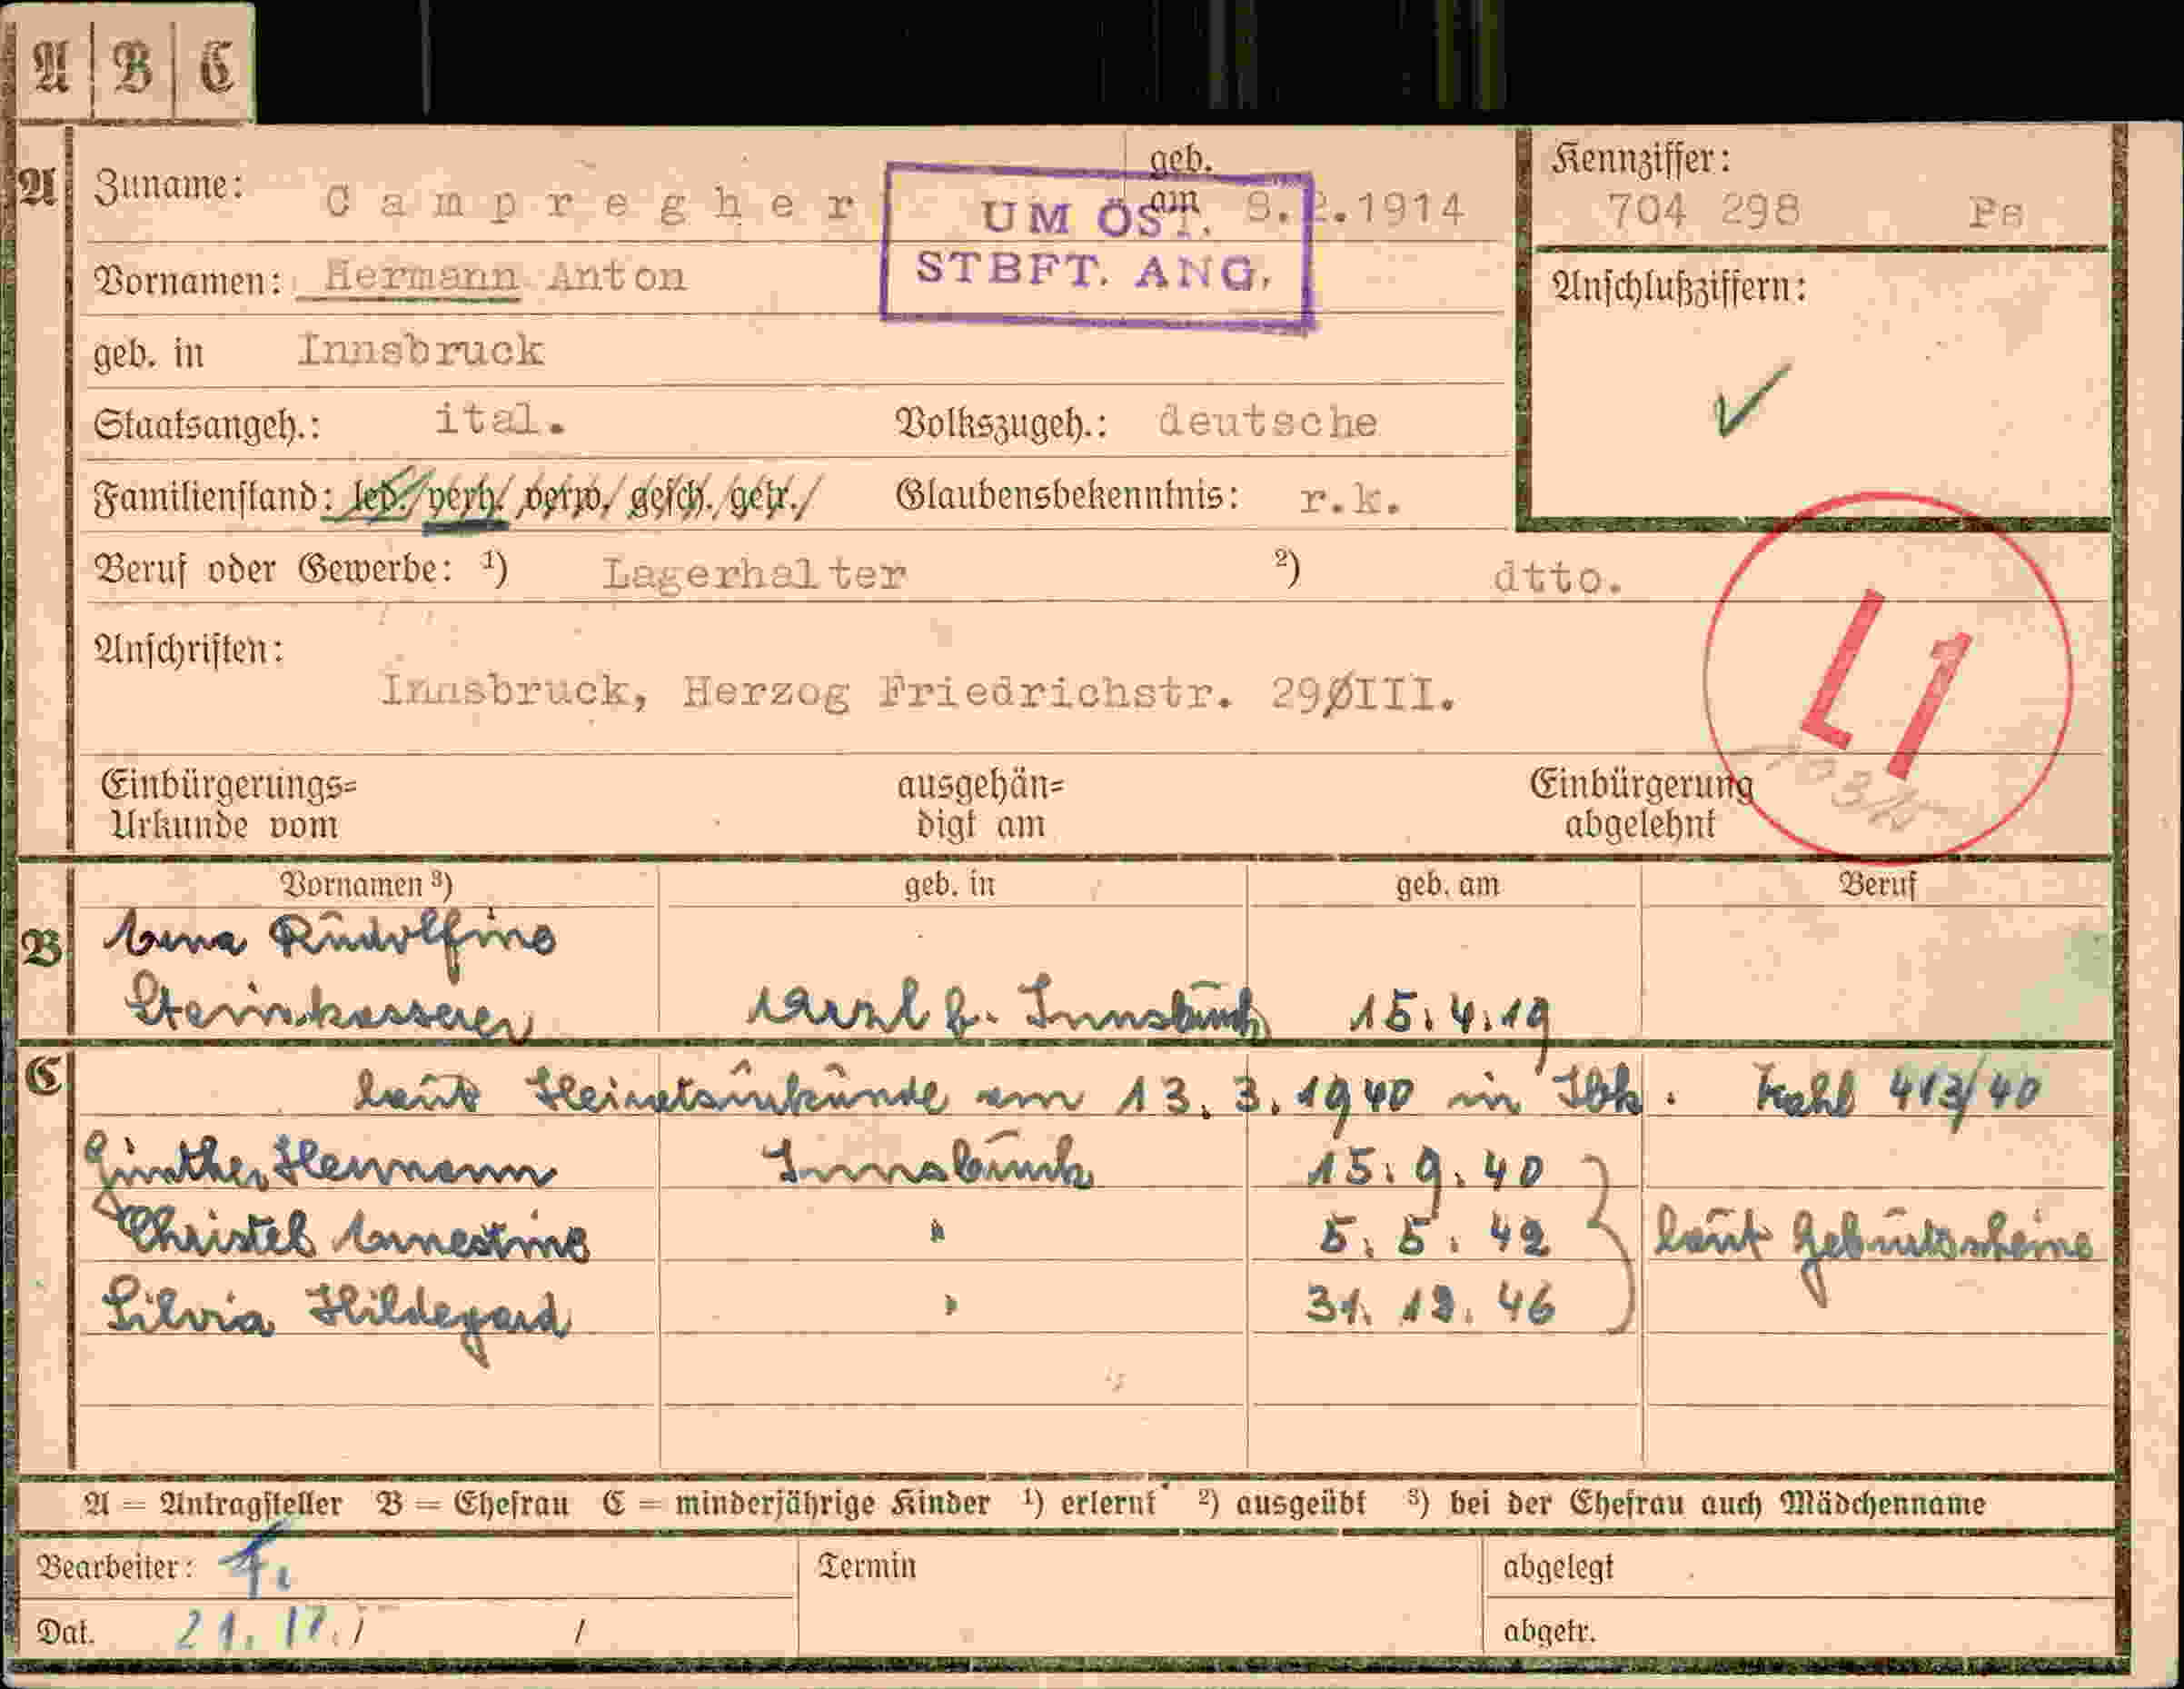 A B C
A Zuname: Campregher geb. am 8.2.1914
UM ÖST.
STBFT. ANG.
Kennziffer:
704 298 Ps
Vornamen: Hermann Anton
Anschlußziffern:
geb. in Innsbruck
Staatsangeh.: ital. Volkszugeh.: deutsche
Familienstand: led./verh./verw./gesch./getr./ Glaubensbekenntnis: r.k.
Beruf oder Gewerbe: ¹) Lagerhalter ²) dtto.
L1
Anschriften:
Innsbruck, Herzog Friedrichstr. 29/III.
Einbürgerungs= ausgehän= Einbürgerung
Urkunde vom digt am abgelehnt
Vornamen ³) geb. in geb. am Beruf
B Rudolfine
Steinkasserer Arzl b. Innsbruck 15.4.19
C laut Heiratsurkunde am 13.3.1940 in Ibk. Zahl 413/40
Günther Hermann Innsbruck 15.9.40
Christel Ernestine " 5.5.42 laut Geburtsscheine
Silvia Hildegard " 31.12.46
A = Antragsteller B = Ehefrau C = minderjährige Kinder ¹) erlernt ²) ausgeübt ³) bei der Ehefrau auch Mädchenname
Bearbeiter: Termin abgelegt
Dat. 21. abgetr.